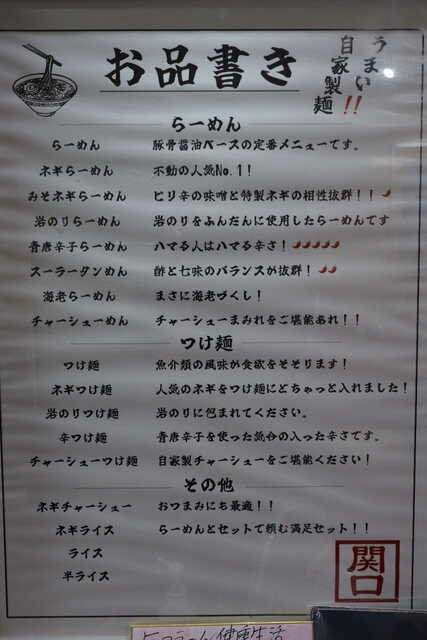 お品書き
うまい!!
自家製麺
らーめん
らーめん 豚骨醤油ベースの定番メニューです。
ネギらーめん 不動の人気No.1!
みそネギらーめん ピリ辛の味噌と特製ネギの相性抜群!!
岩のりらーめん 岩のりをふんだんに使用したらーめんです
青唐辛子らーめん ハマる人はハマる辛さ!
スーラータンめん 酢と七味のバランスが抜群!
海老らーめん まさに海老づくし!
チャーシューめん チャーシューまみれをご堪能あれ!!
つけ麺
つけ麺 魚介類の風味が食欲をそそります!
ネギつけ麺 人気のネギをつけ麺にどちゃっと入れました!
岩のりつけ麺 岩のりに包まれてください。
辛つけ麺 青唐辛子を使った気合の入った辛さです。
チャーシューつけ麺 自家製チャーシューをご堪能ください!
その他
ネギチャーシュー おつまみにも最適!!
ネギライス らーめんとセットで頼む満足セット!!
ライス
半ライス
関口
健康生活